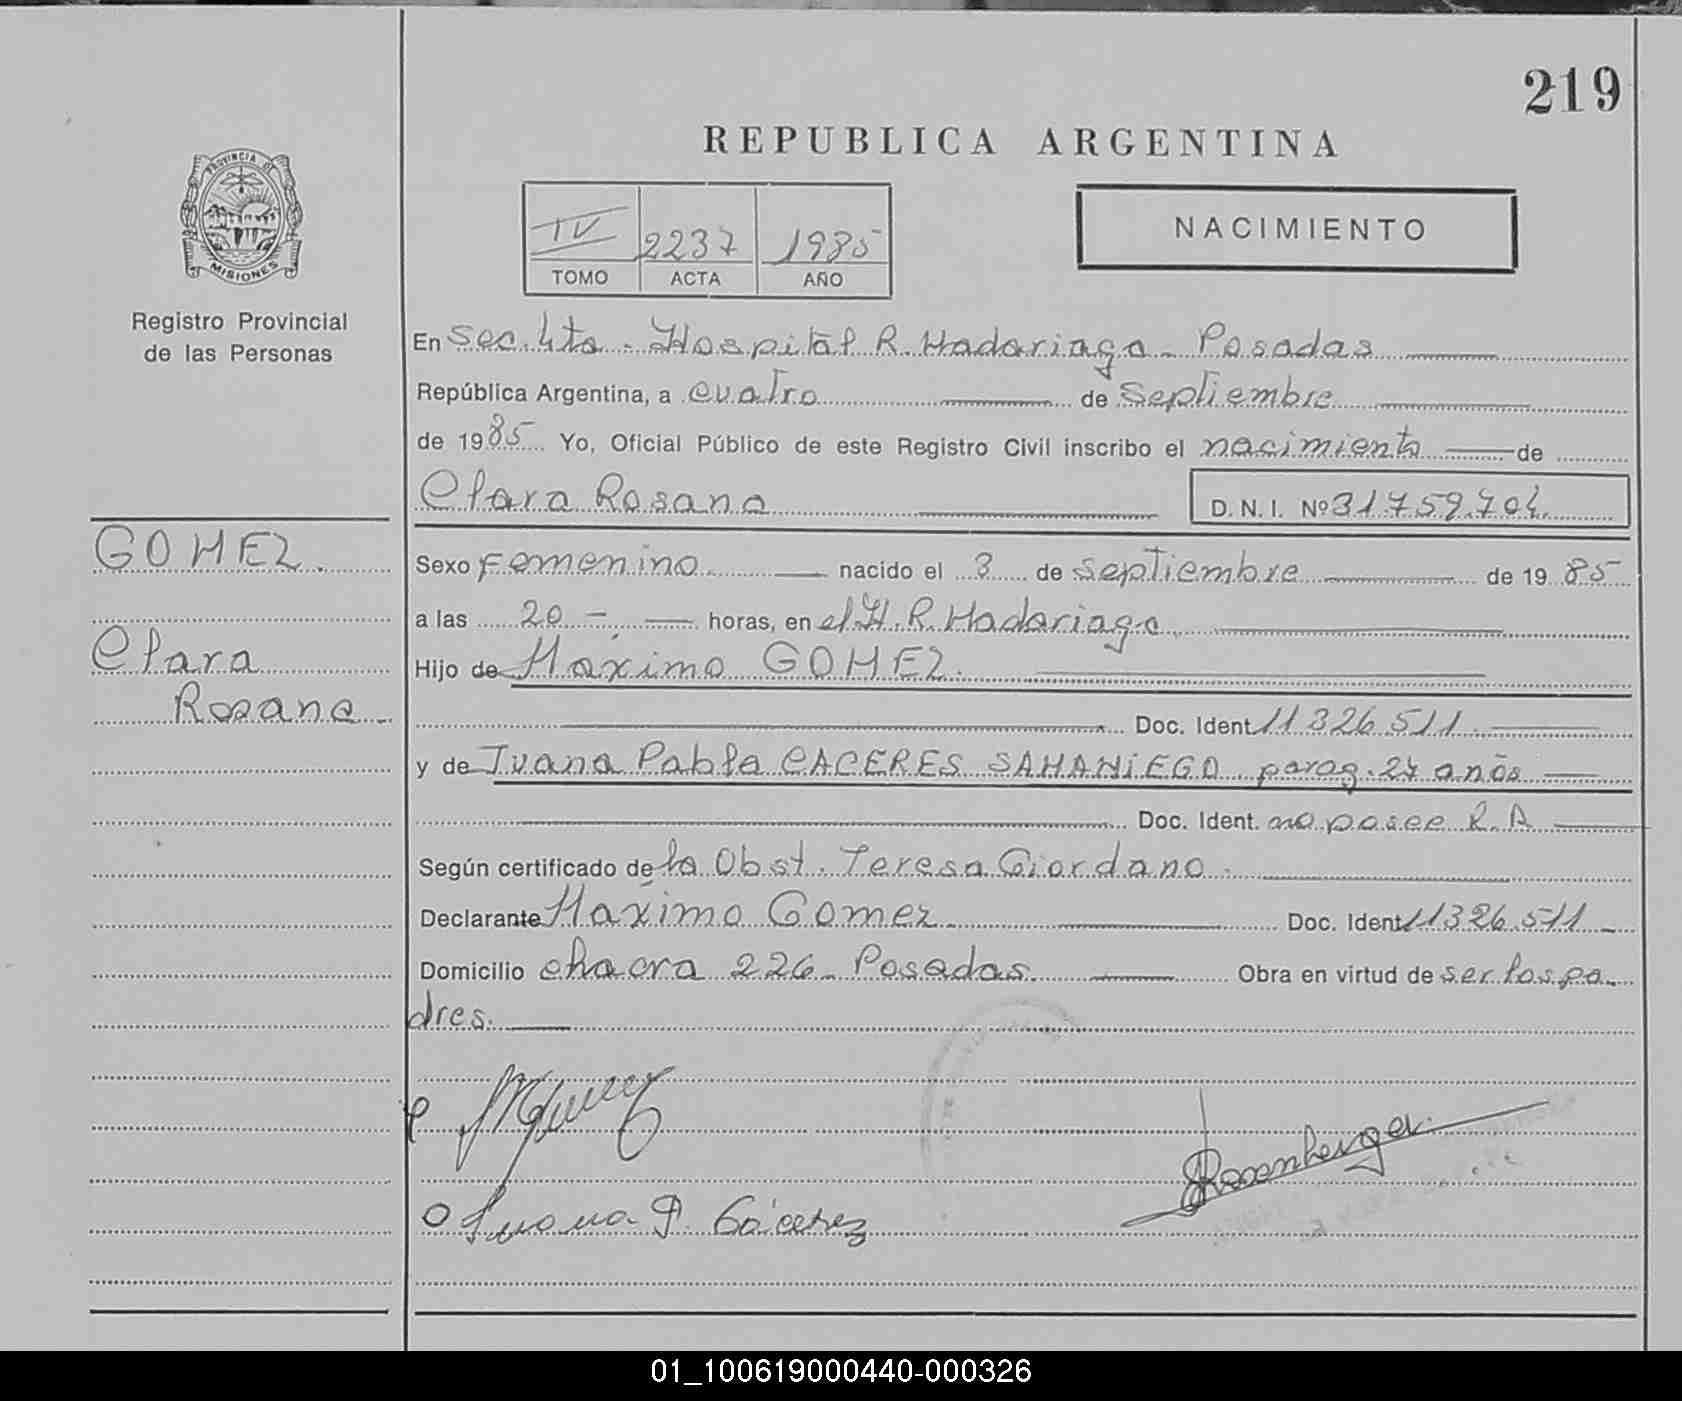 219
REPUBLICA ARGENTINA
PROVINCIA DE
MISIONES
Registro Provincial
de las Personas
IV 2237 1985
TOMO ACTA AÑO
NACIMIENTO
En Sec. 4ta. Hospital R. Madariaga - Posadas
República Argentina, a cuatro de Septiembre
de 1985 Yo, Oficial Público de este Registro Civil inscribo el nacimiento de
Clara Rosana
D. N. I. Nº 31.759.704
GOMEZ.
Clara
Rosana
Sexo Femenino nacido el 3 de septiembre de 1985
a las 20 - horas, en el H. R. Madariaga
Hijo de Máximo GOMEZ.
Doc. Ident. 11.326.511
y de Juana Pabla CACERES SAMANiEGO parag. 24 años
Doc. Ident. no posee R.A
Según certificado de la Obst. Teresa Giordano.
Declarante Máximo Gomez Doc. Ident. 11.326.511
Domicilio chacra 226 - Posadas. Obra en virtud de ser los pa-
dres.
Juana P. Cácerez
Rosenberger
01_100619000440-000326